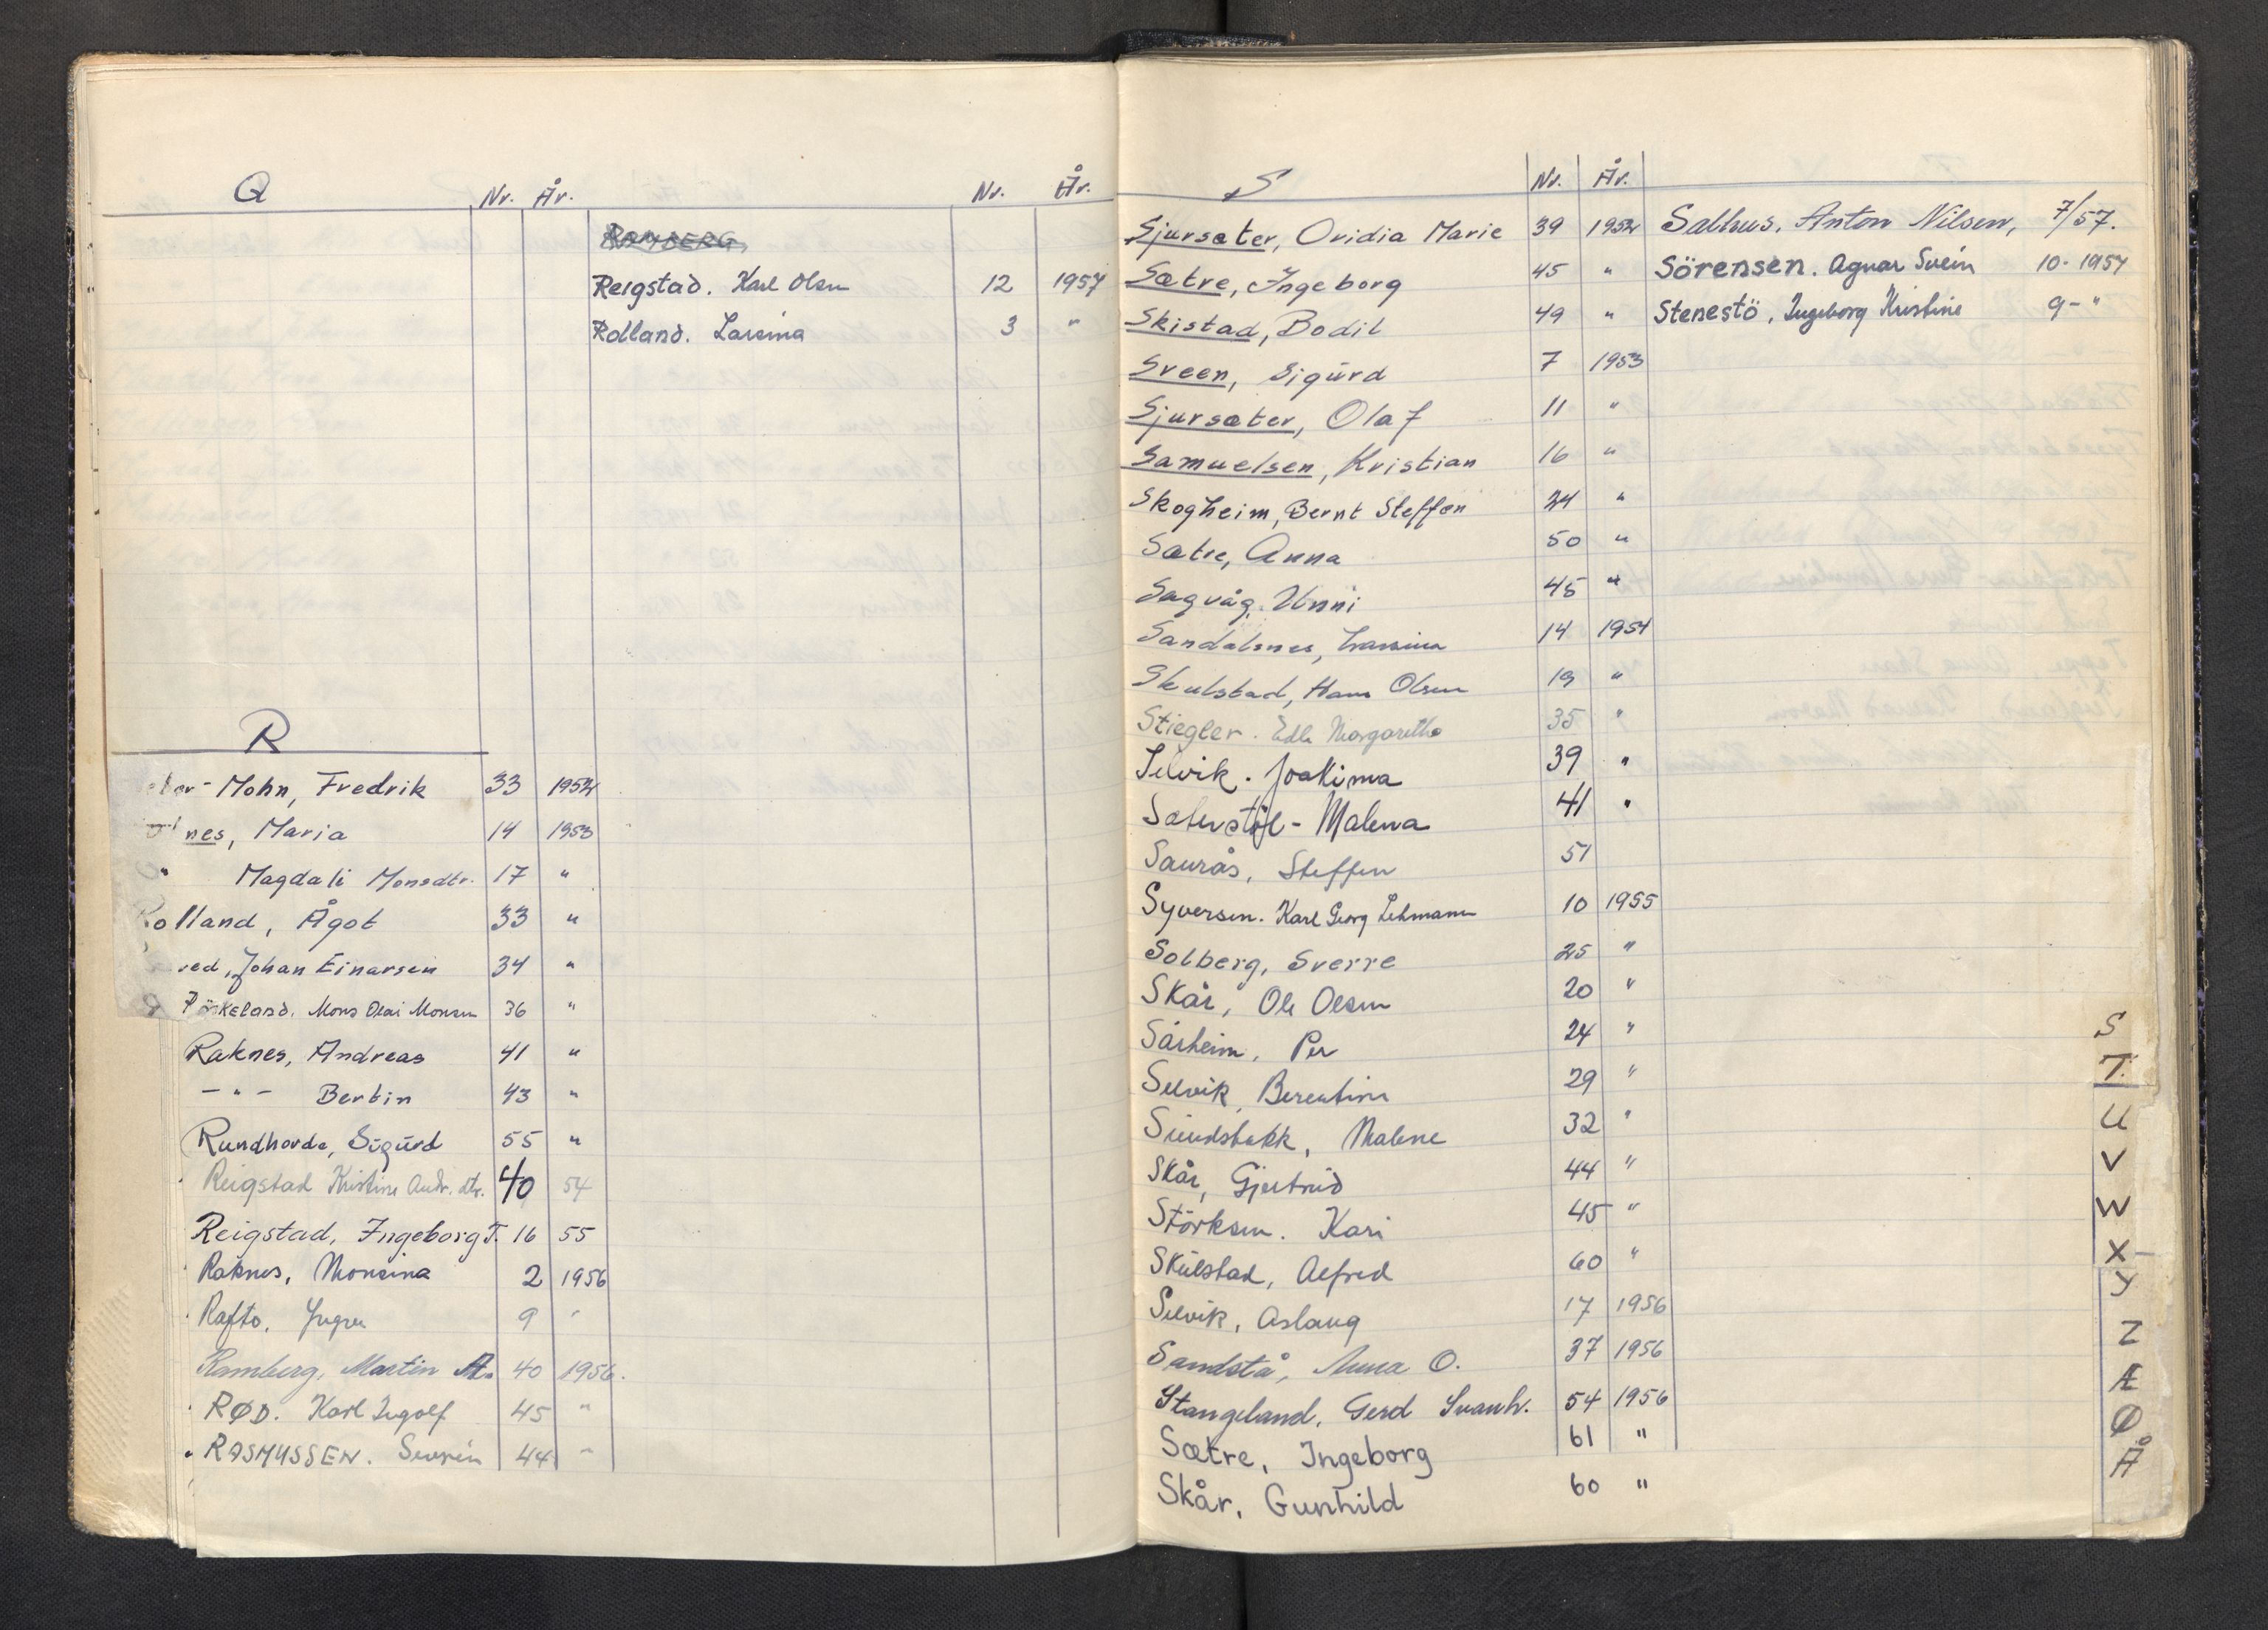 Q Nr. År. Nr. År.
RAMBERG,
Reigstad. Karl Olsen 12 1957
Rolland. Larsina 3 "
R
Mohn, Fredrik 33 1952
nes, Maria 14 1953
" Magdali Monsdtr. 17 "
Rolland, Ågot 33 "
Johan Einarsen 34 "
Mons Olai Monsen 36 "
Raknes, Andreas 41 "
- " - Bertin 43 "
Rundhovde, Sigurd 55 "
Reigstad Kristine Andr. dtr. 40 54
Reigstad, Ingeborg T. 16 55
Raknes, Monsina 2 1956
Rafto, Yngva 9 "
Ramberg, Martin A. 40 1956.
RØD. Karl Ingolf 45 "
RASMUSSEN. Severin 44 "
S Nr. År.
Sjursæter, Ovidia Marie 39 1952
Sætre, Ingeborg 45 "
Skistad, Bodil 49 "
Sveen, Sigurd 7 1953
Sjursæter, Olaf 11 "
Samuelsen, Kristian 16 "
Skogheim, Bernt Steffen 24 "
Sætre, Anna 50 "
Sagvåg, Unni 45 "
Sandalsnes, 14 1954
Skulstad, Hans Olsen 19 "
Stiegler. Edle Margarethe 35 "
Selvik. Joakima 39 "
Sæterstøl - Malena 41 "
Saurås, Steffen 51
Syversen. Karl Georg Lehmann 10 1955
Solberg, Sverre 25 "
Skår, Ole Olsen 20 "
Sårheim, Per 24 "
Selvik, Berentine 29 "
Sundsbakk, Malene 32 "
Skår, Gjertrud 44 "
Störksen. Kari 45 "
Skulstad, Alfred 60 "
Selvik, Aslaug 17 1956
Sandstå, Anna O. 37 1956
Stangeland, Gerd Svanh. 54 1956
Sætre, Ingeborg 61 "
Skår, Gunhild 60 "
Salhus, Anton Nilsen, 7/57.
Sörensen. Agnar Svein 10 - 1957
Stenestö, Ingeborg Kristine 9 - "
S
T.
U
V
W
X
Y
Z
Æ
Ø
Å